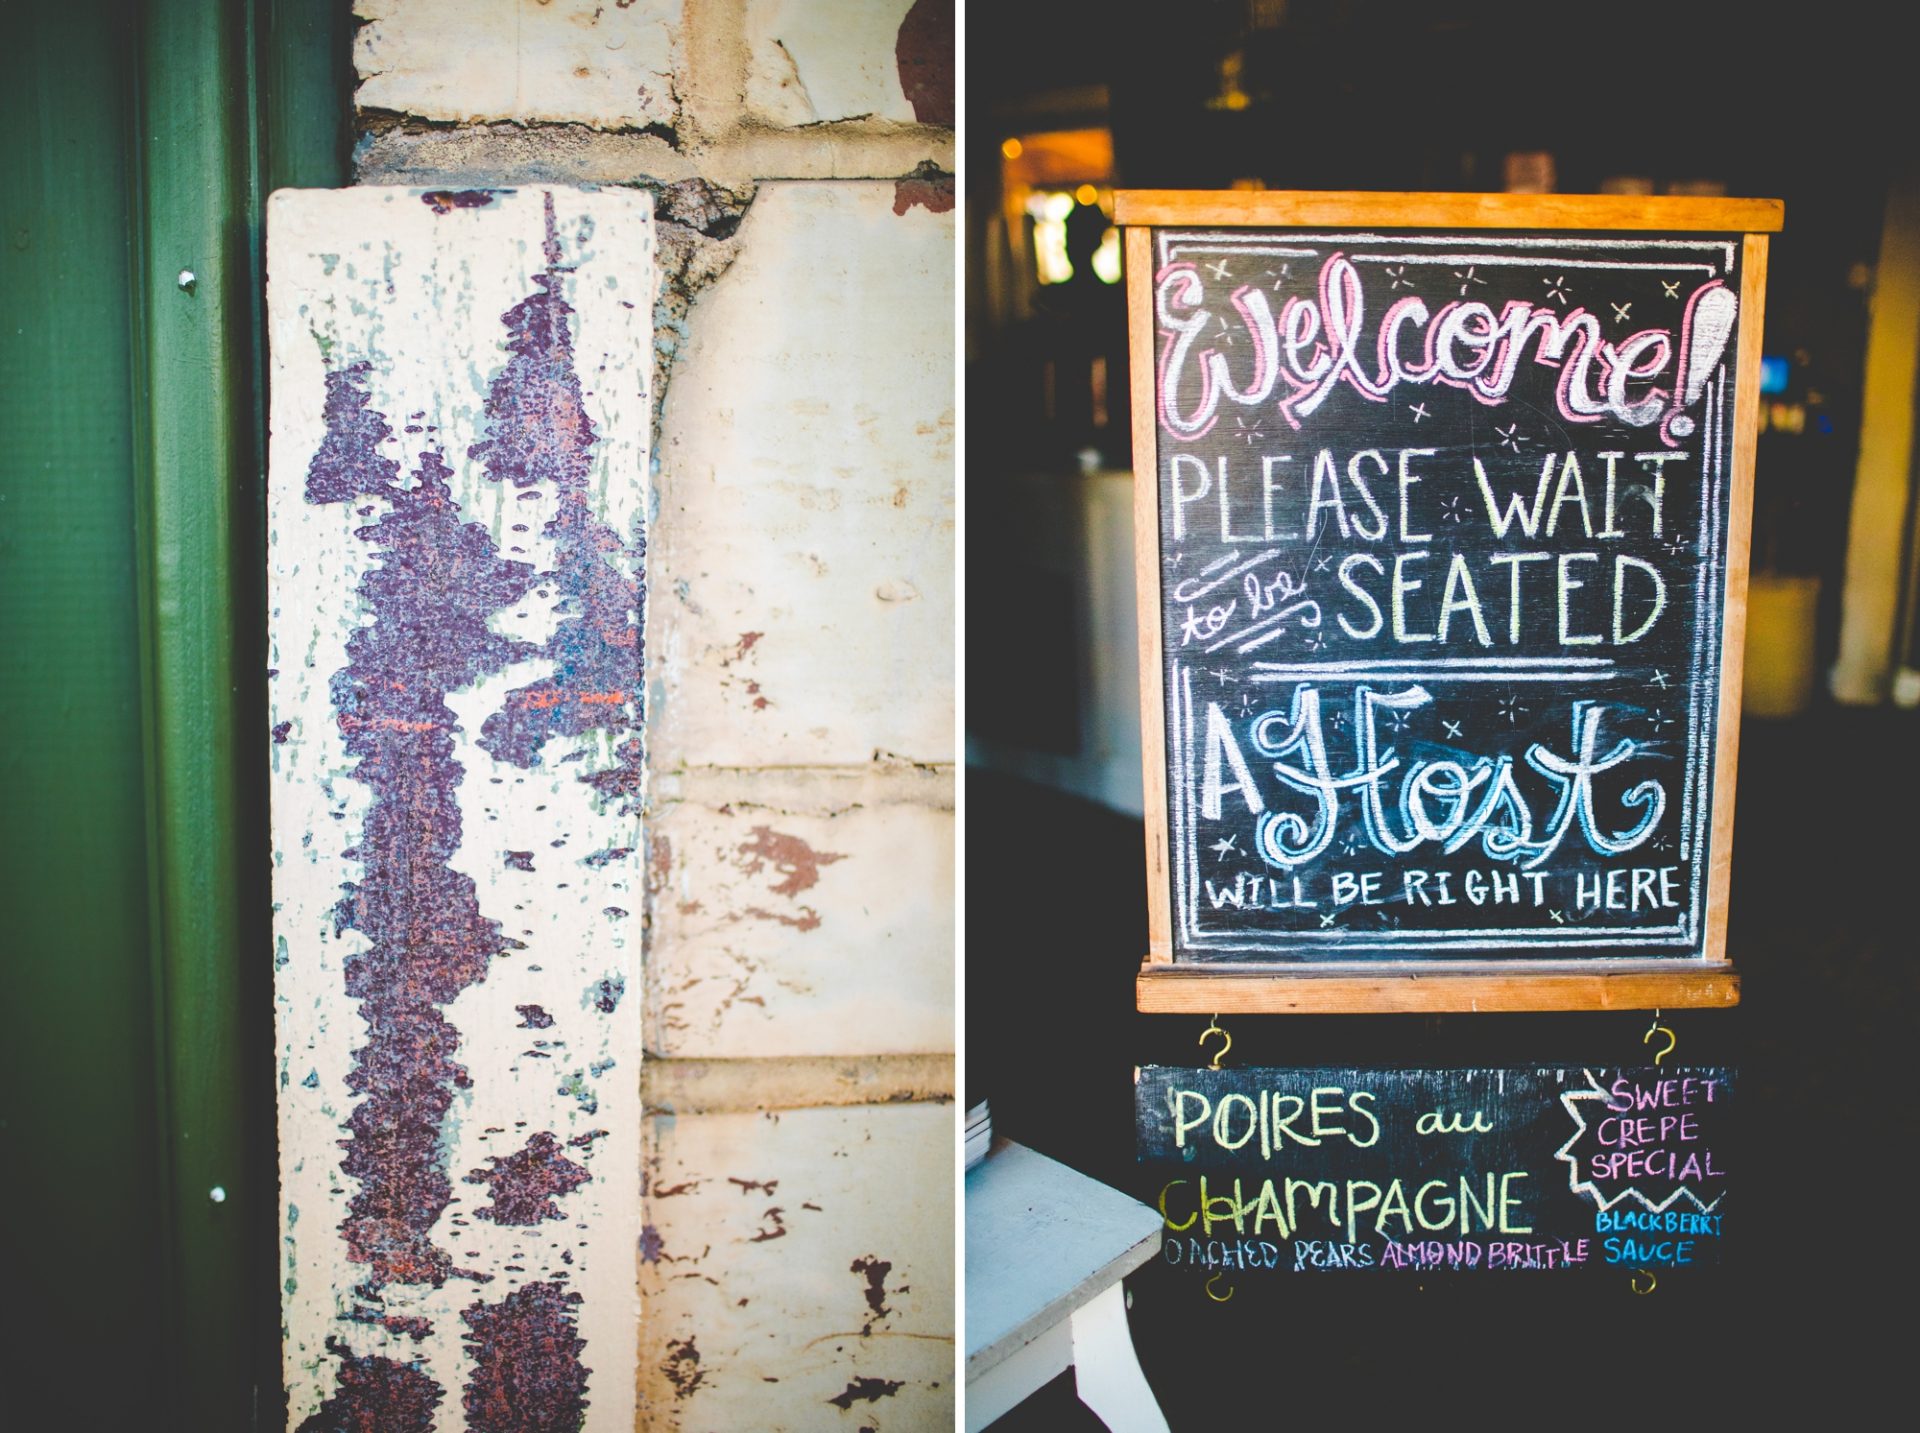 Welcome!
PLEASE WAIT
to be SEATED
A Host
WILL BE RIGHT HERE
POIRES au
CHAMPAGNE
PEARS ALMOND BRITTLE
SWEET
CREPE
SPECIAL
BLACKBERRY
SAUCE